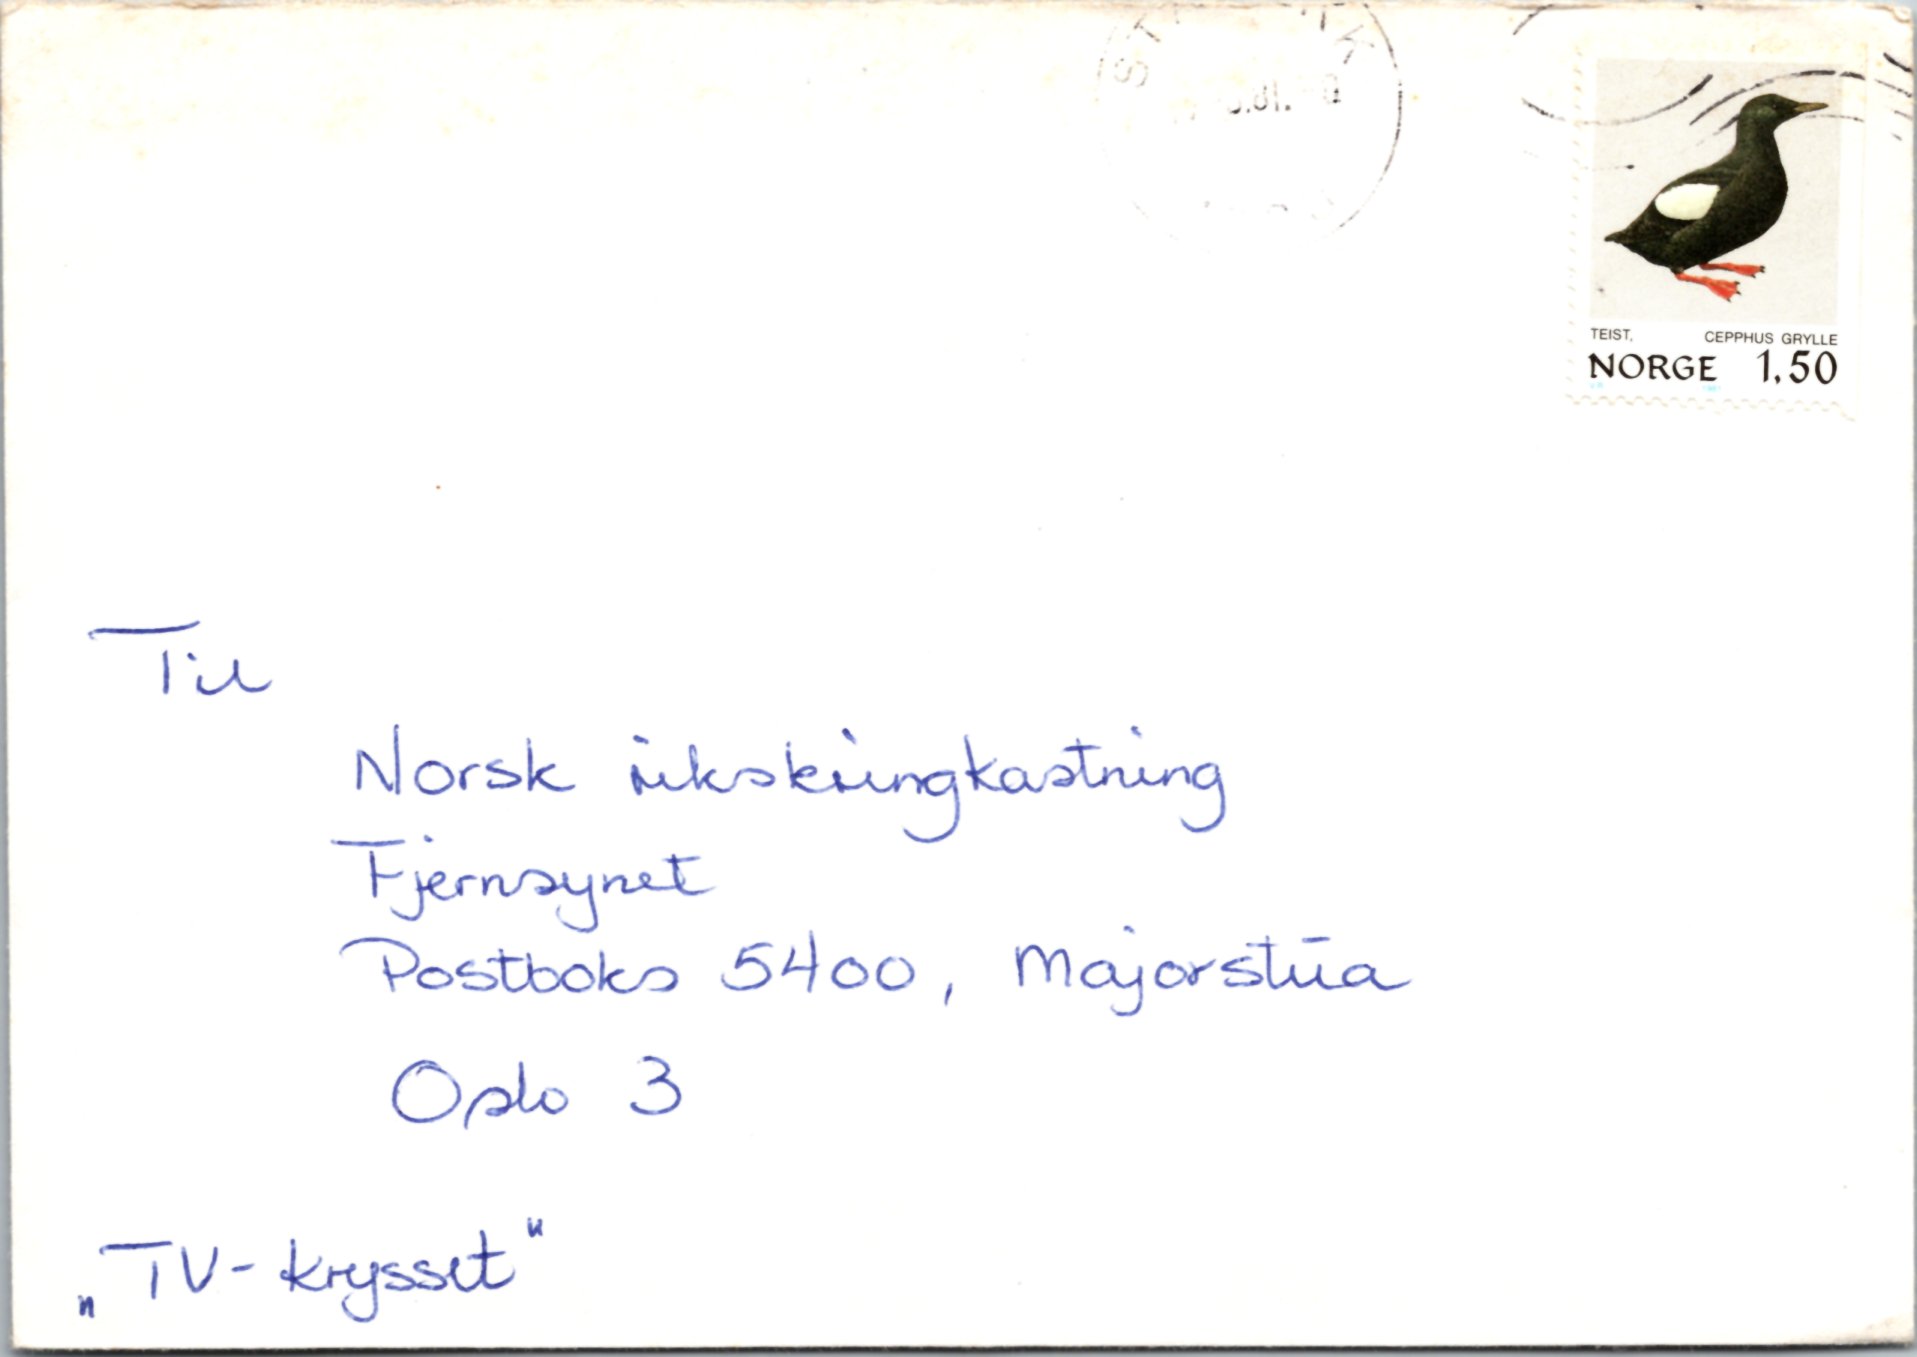 TEIST, CEPPHUS GRYLLE
NORGE 1,50
Til
Norsk rikskringkastning
Fjernsynet
Postboks 5400, Majorstua
Oslo 3
„TV-krysset"